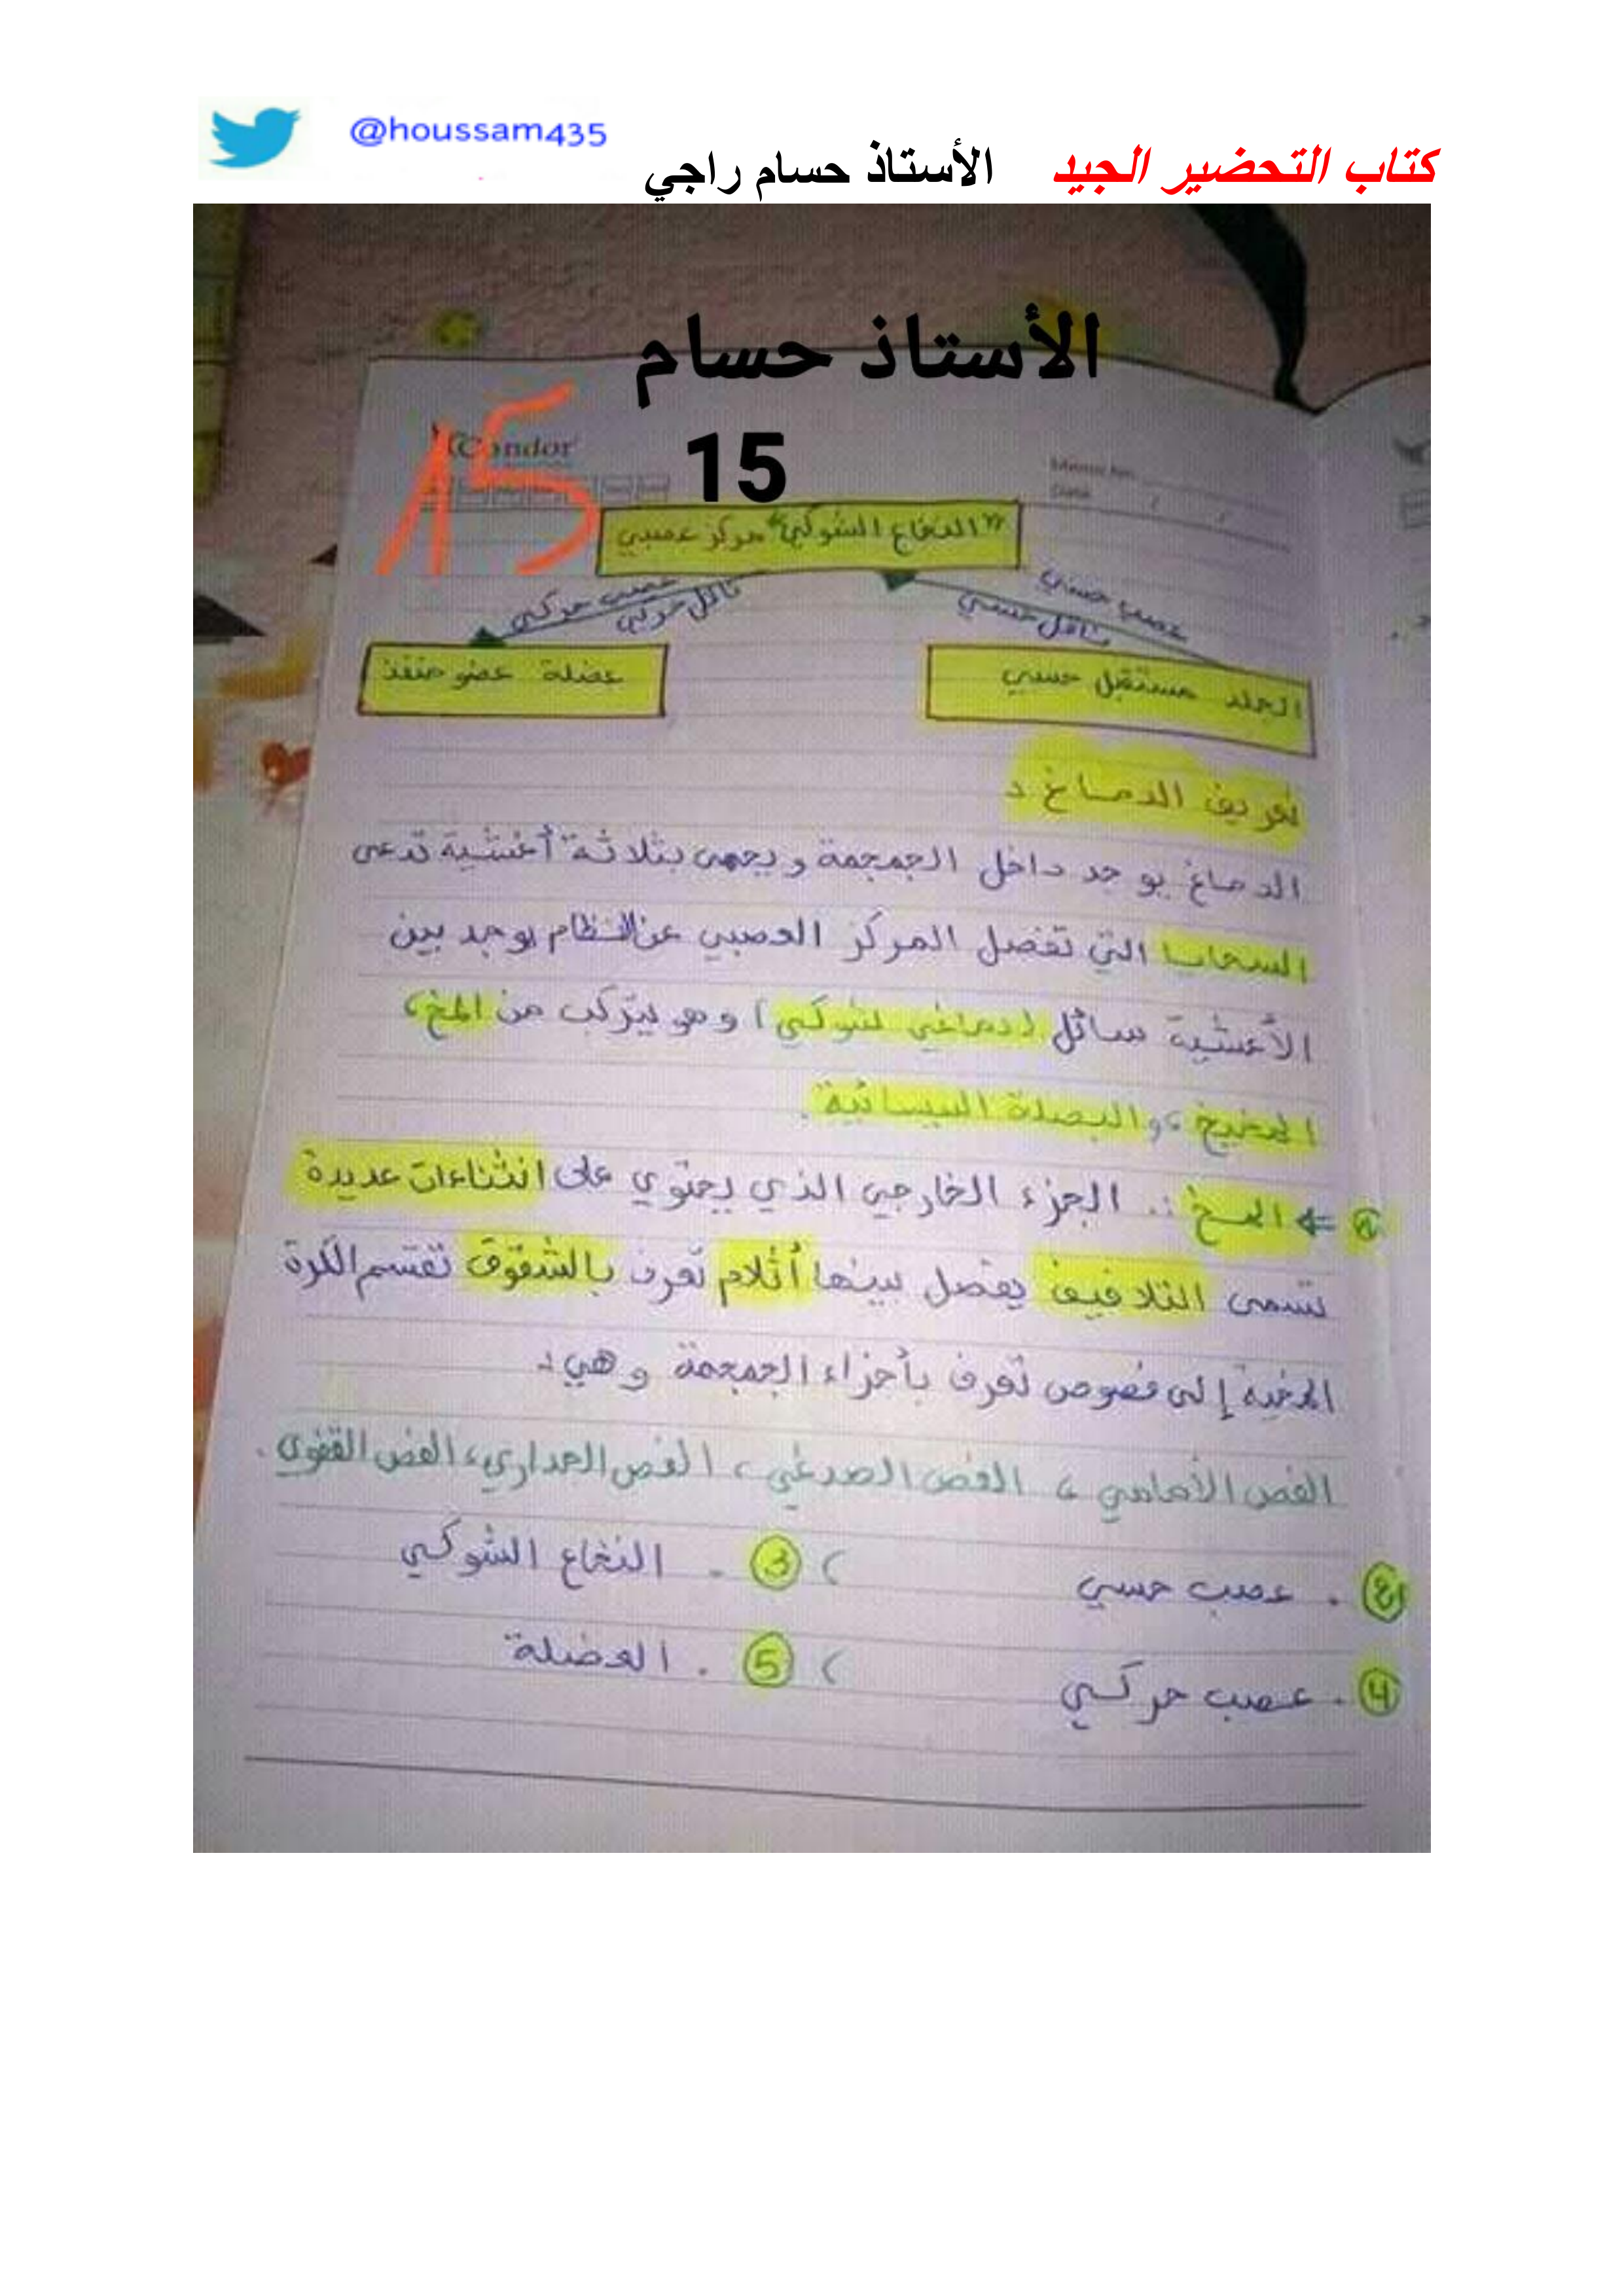 @houssam435
كتاب التحضير الجيد الأستاذ حسام راجي
الأستاذ حسام
15
15
Condor
Date / /
"النخاع الشوكي" مركز عصبي
عصب حسي
ناقل حسي
عصب حركي
ناقل حركي
الجلد مستقبل حسي
عضلة عضو منفذ
تعريف الدماغ :
الدماغ يوجد داخل الجمجمة و يحمى بثلاثة أغشية تدعى
السحايا التي تفصل المركز العصبي عن النظام يوجد بين
الأغشية سائل (دماغي شوكي) و هو يتركب من المخ،
المخيخ، و البصلة السيسائية.
⇐ المخ : الجزء الخارجي الذي يحتوي على انثناءات عديدة
تسمى التلافيف يفصل بينها أثلام تعرف بالشقوق تقسم الكرة
المخية إلى فصوص تعرف بأجزاء الجمجمة و هي :
الفص الأمامي، الفص الصدغي، الفص الجداري، الفص القفوي.
2. عصب حسي ( 3. النخاع الشوكي
4. عصب حركي ( 5. العضلة